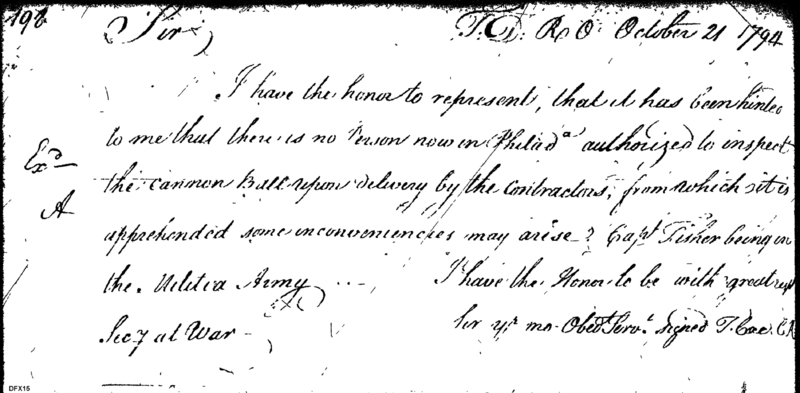 198
Sir T.D. R O October 21 1794
I have the honor to represent, that it has been hinted
to me that there is no Person now in Philadᵃ authorized to inspect
Exᵈ
the cannon Ball upon delivery by the Contractors, from which it is
A
apprehended some inconveniencies may arise? Capᵗ Fisher being in
the Militia Army I have the Honor to be with great
Secy at War Sir yʳ mo Obedᵗ Servᵗ signed T. Coxe. CR
DFX15